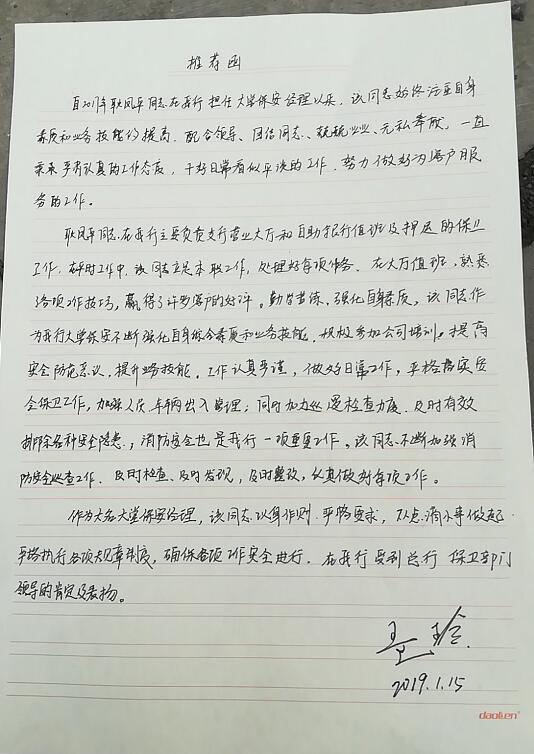 推荐函
自2011年耿凤平同志在我行担任大堂保安经理以来，该同志始终注重自身
素质和业务技能的提高，配合领导、团结同志、兢兢业业、无私奉献，一直
秉承严肃认真的工作态度，干好日常看似平淡的工作，努力做好为客户服
务的工作。
耿凤平同志在我行主要负责支行营业大厅和自助银行值班及押运的保卫
工作，在平时工作中，该同志立足本职工作，处理好每项事务。在大厅值班，熟悉
各项工作技巧，赢得了许多客户的好评。勤学苦练，强化自身素质，该同志作
为我行大堂保安不断强化自身综合素质和业务技能，积极参加公司培训，提高
安全防范意识，提升业务技能。工作认真负责，做好日常工作，严格落实安
全保卫工作，加强人员车辆出入管理；同时加大巡逻检查力度，及时有效
排除各种安全隐患，消防安全也是我行一项重要工作。该同志不断加强消
防安全巡查工作，及时检查、及时发现，及时整改，认真做到每项工作。
作为大名大堂保安经理，该同志以身作则，严格要求，从点滴小事做起，
严格执行各项规章制度，确保各项工作安全进行，在我行受到总行保卫部门
领导的肯定及表扬。
2019.1.15
daolien